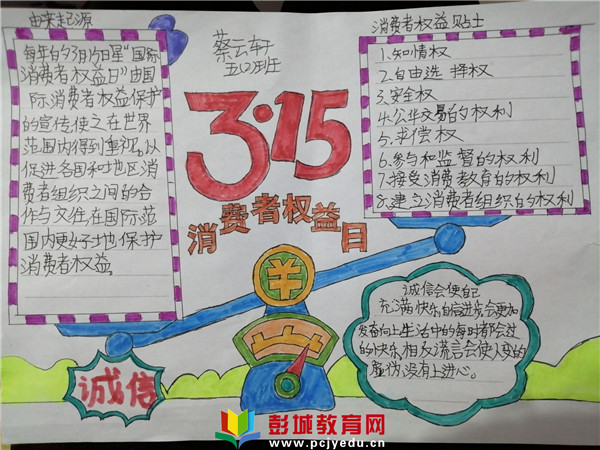 由来起源
每年的3月15日是“国际
消费者权益日”由国
际消费者权益保护
的宣传，使之在世界
范围内得到重视。以
促进各国和地区消
费者组织之间的合
作与交往，在国际范
围内更好地保护
消费者权益。
蔡云轩
五(2)班
3·15
消费者权益日
消费者权益贴士
1.知情权
2.自由选择权
3.安全权
4.公平交易的权利
5.求偿权
6.参与和监督的权利
7.接受消费教育的权利
8.建立消费者组织的权利
诚信会使自己
充满快乐自信进境会更加
发奋向上生活中的每时都会过
的快乐，相反谎言会使人变的
虚伪，没有上进心。
诚信
彭城教育网
www.pcjyedu.cn